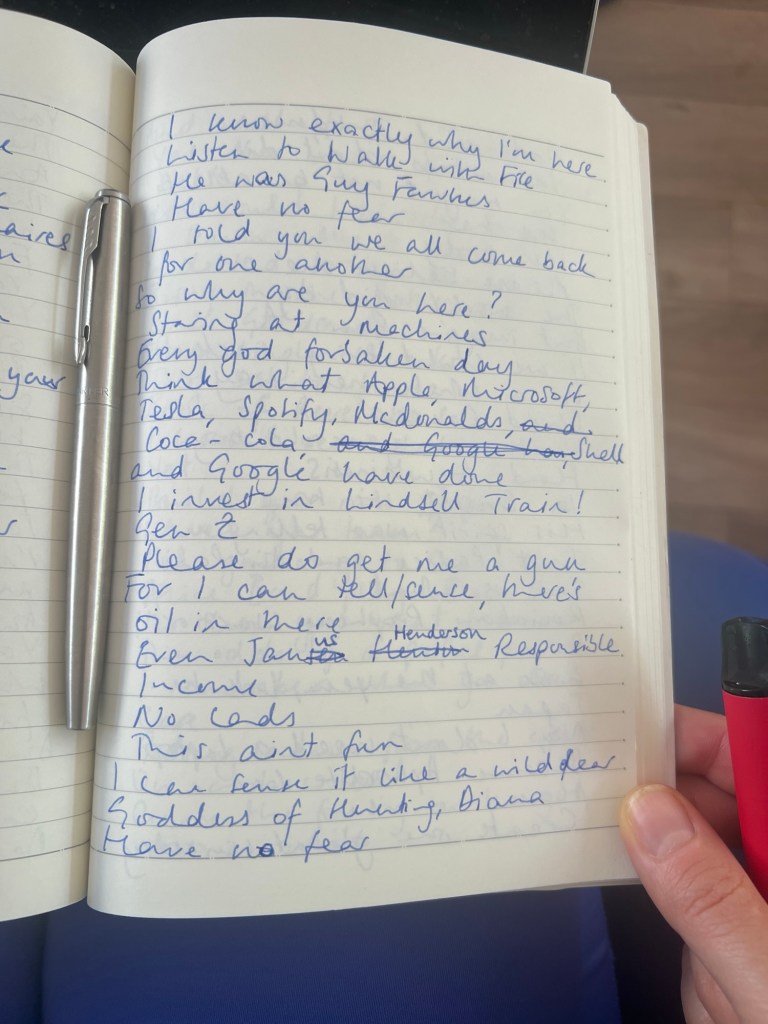 I know exactly why I'm here
Listen to Walk with Fire
He was Guy Fawkes
Have no fear
I told you we all come back
for one another
So why are you here?
Staring at machines
Every god forsaken day
Think what Apple, Microsoft,
Tesla, Spotify, Mcdonalds, and
Coca-cola and Google have, Shell
and Google have done
I invest in Lindsell Train!
Gen Z
Please do get me a gun
For I can tell/sence, there's
oil in there
Even Janus Henderson Responsible
Income
No Lands
This aint fun
I can sense it like a wild dear
Goddess of Hunting, Diana
Have no fear
aires
your